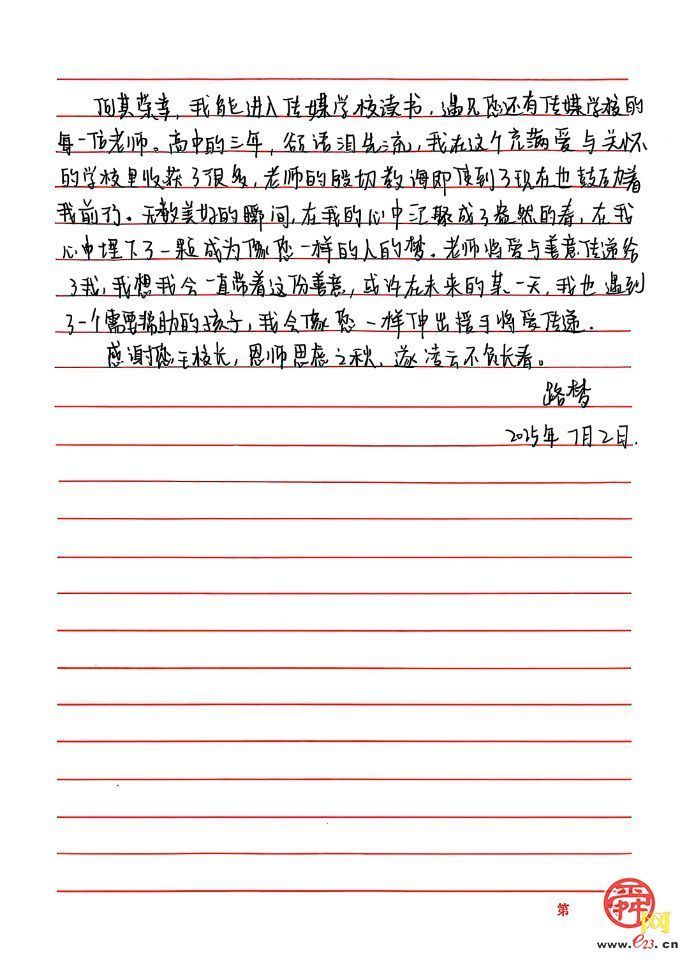 何其荣幸，我能进入传媒学校读书，遇见您还有传媒学校的
每一位老师。高中的三年，欲语泪先流，我在这个充满爱与关怀
的学校里收获了很多，老师的殷切教诲即使到了现在也鼓励着
我前行。无数美好的瞬间，在我的心中汇聚成了盎然的春，在我
心中埋下了一颗成为像您一样的人的梦。老师将爱与善意传递给
了我，我想我会一直带着这份善意，或许在未来的某一天，我也遇到
了一个需要帮助的孩子，我会像您一样伸出援手将爱传递.
感谢您王校长，恩师思虑之秋，遂凌云不负长春。
路梦
2025年7月2日.
第
舜网
www.e23.cn